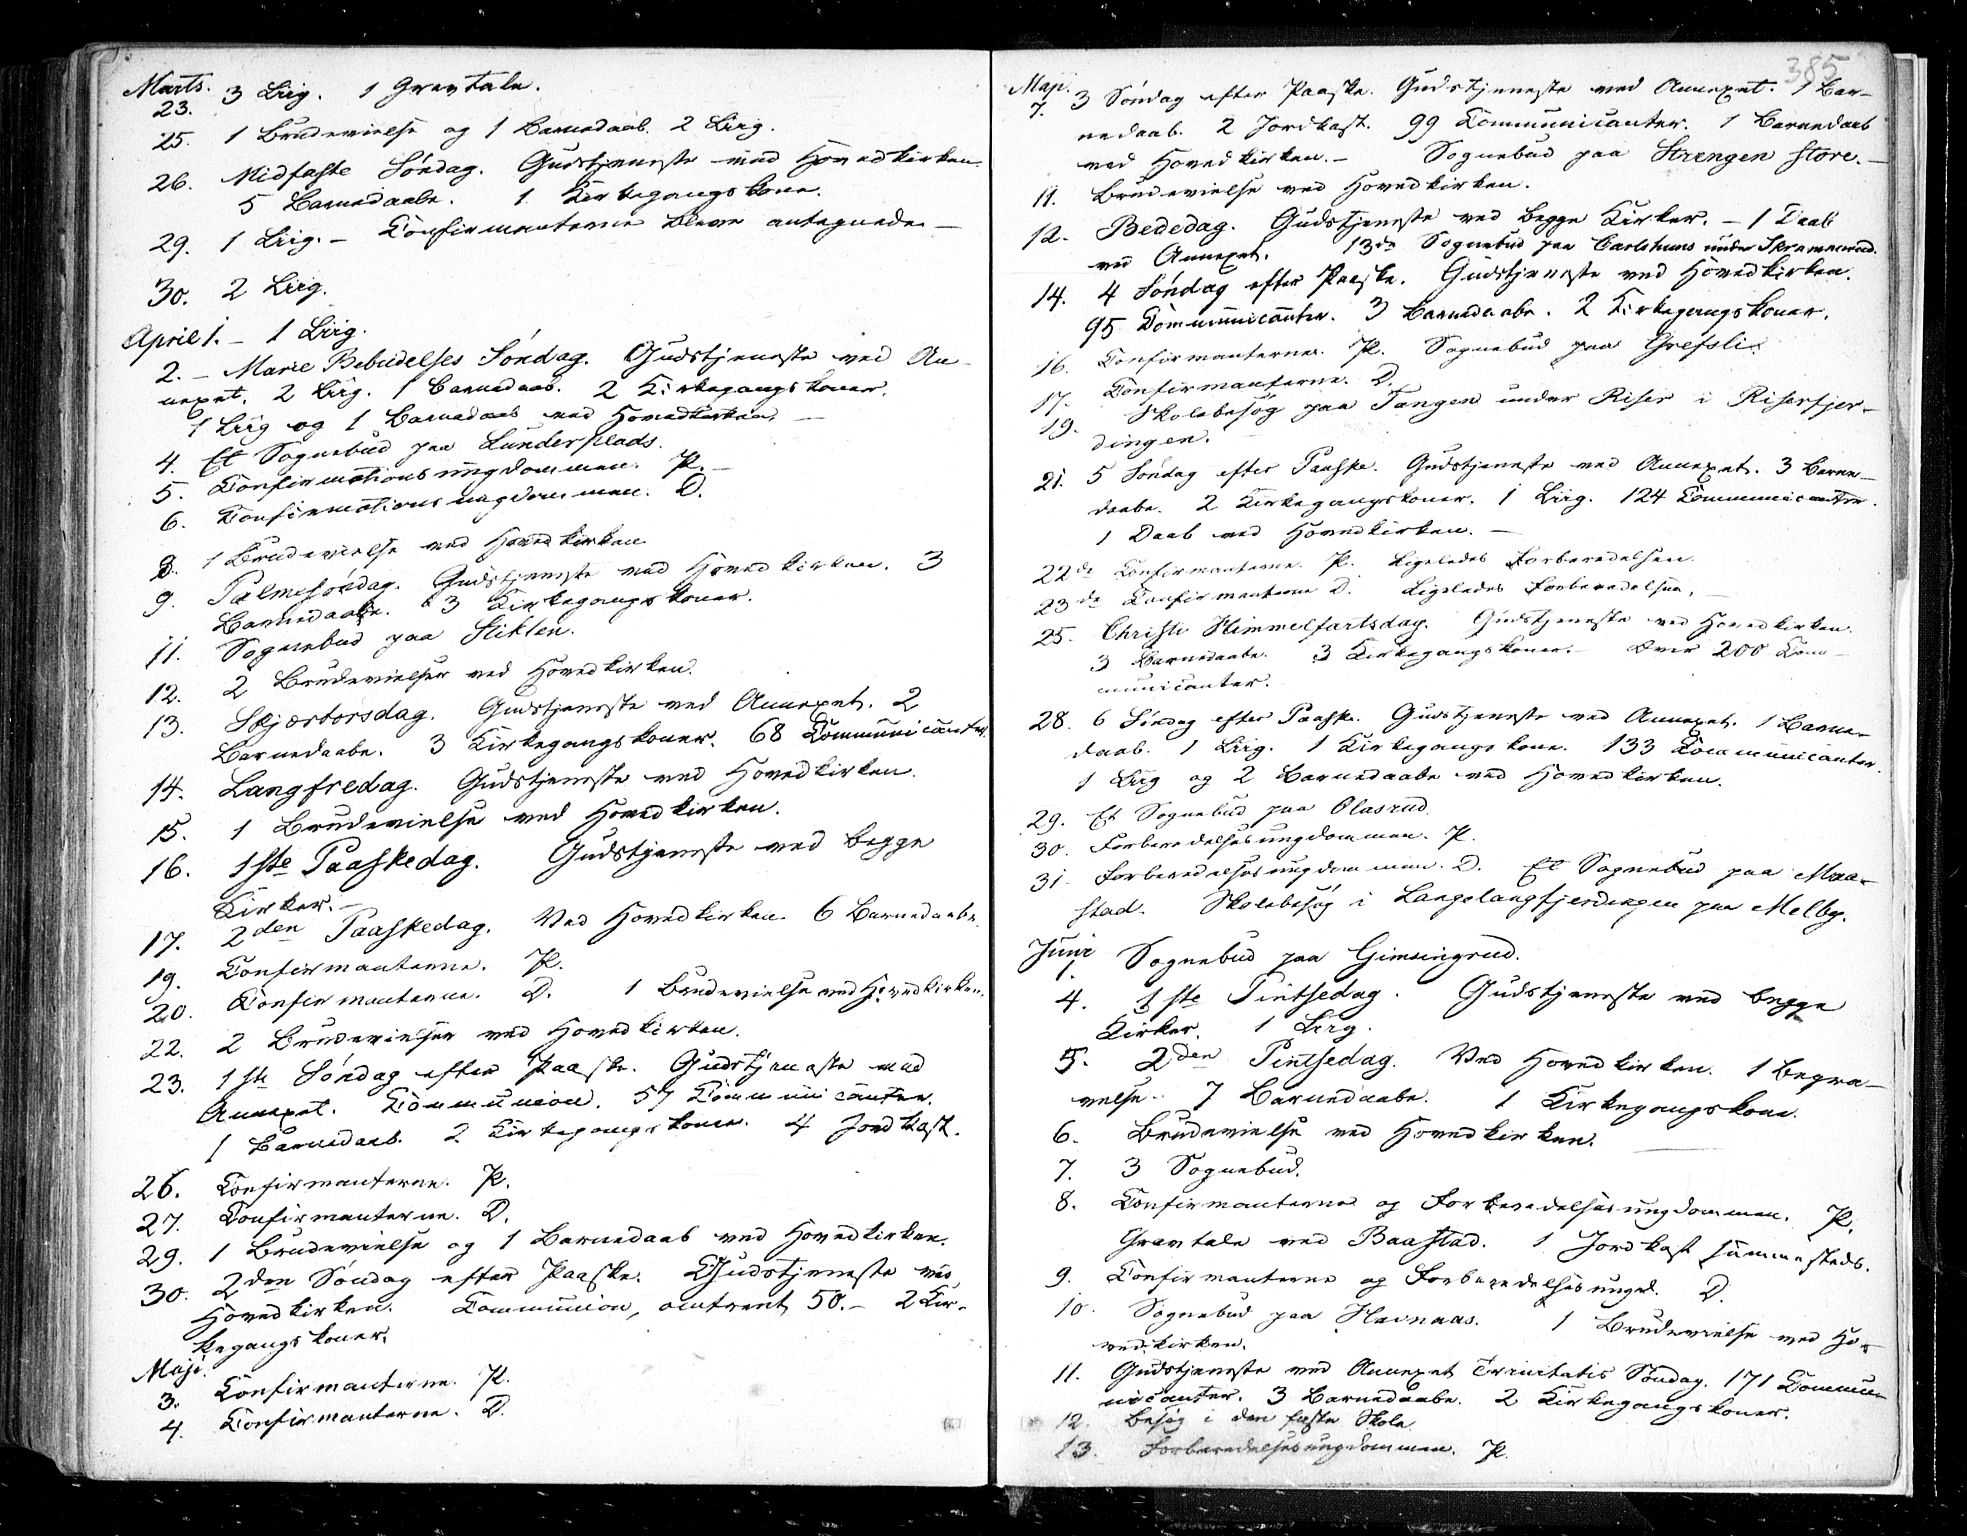 Marts.
23. 3 Liig. 1 Gravtale.
25. 1 Brudevielse og 1 Barnedaab. 2 Liig.
26. Midfaste Söndag. Gudstjeneste ved Hovedkirken
5 Barnedaabe. 1 Kirkegangskone.
29. 1 Liig. – Confirmanterne bleve antegnede. –
30. 2 Liig.
April 1. – 1 Liig.
2. – Marie Bebudelses Söndag. Gudstjeneste ved An-
nexet. 2 Liig. 1 Barnedaab. 2 Kirkegangskoner.
1 Liig og 1 Barnedaab ved Hovedkirken. –
4. Et Sognebud paa Lunderplads.
5. Confirmationsungdommen. P. –
6. Confirmationsungdommen. D.
8. 1 Brudevielse ved Hovedkirken
9. Palmesöndag. Gudstjeneste ved Hovedkirken. 3
Barnedaabe. 3 Kirkegangskoner.
11. Sognebud paa Slikten.
12. 2 Brudevielser ved Hovedkirken.
13. Skjærtorsdag. Gudstjeneste ved Annexet. 2
Barnedaabe. 3 Kirkegangskoner. 68 Communicanter.
14. Langfredag. Gudstjeneste ved Hovedkirken.
15. 1 Brudevielse ved Hovedkirken.
16. 1ste Paaskedag. Gudstjeneste ved begge
Kirker. –
17. 2den Paaskedag. Ved Hovedkirken. 6 Barnedaabe.
19. Confirmanterne. P.
20. Confirmanterne. D. 1 Brudevielse ved Hovedkirken.
22. 2 Brudevielser ved Hovedkirken.
23. 1ste Söndag efter Paaske. Gudstjeneste ved
Annexet. Communion. 57 Communicanter.
1 Barnedaab. 2 Kirkegangskoner. 4 Jordkast.
26. Confirmanterne. P.
27. Confirmanterne. D.
29. 1 Brudevielse og 1 Barnedaab ved Hovedkirken.
30. 2den Söndag efter Paaske. Gudstjeneste ved
Hovedkirken. Communion, omtrent 50. – 2 Kir-
kegangskoner.
Maji.
3. Confirmanterne. P.
4. Confirmanterne. D.
385
Maji.
7. 3 Söndag efter Paaske. Gudstjeneste ved Annexet. 1 Bar-
nedaab. 2 Jordkast. 99 Communicanter. 1 Barnedaab
ved Hovedkirken. – Sognebud paa Strengen store. –
11. Brudevielse ved Hovedkirken.
12. Bededag. Gudstjeneste ved begge Kirker. – 1 Daab
ved Annexet. 13de Sognebud paa Carlshuus under Skrammerud.
14. 4 Söndag efter Paaske. Gudstjeneste ved Hovedkirken.
95 Communicanter. 3 Barnedaabe. 2 Kirkegangskoner.
16. Confirmanterne. P. Sognebud paa Grefsli.
17. Confirmanterne. D.
19. Skolebesög paa Tangen under Riser i Riserfjer-
dingen.
21. 5 Söndag efter Paaske. Gudstjeneste ved Annexet. 3 Barne-
daabe. 2 Kirkegangskoner. 1 Liig. 124 Communicanter.
1 Daab ved Hovedkirken. –
22de Confirmanterne. P. Ligeledes Forberedelsen.
23de Confirmanterne D. Ligeledes Forberedelsen. –
25. Christi Himmelfartsdag. Gudstjeneste ved Hovedkirken.
3 Barnedaabe. 3 Kirkegangskoner. Over 200 Com-
municanter.
28. 6 Söndag efter Paaske. Gudstjeneste ved Annexet. 1 Barne-
daab. 1 Liig. 1 Kirkegangskone. 133 Communicanter.
1 Liig og 2 Barnedaabe ved Hovedkirken.
29. Et Sognebud paa Olasrud.
30. Forberedelsesungdommen. P.
31. Forberedelsesungdommen. D. Et Sognebud paa Maa-
stad. Skolebesög i Langelangfjerdingen paa Melby.
Juni
1. Sognebud paa Gimsingrud.
4. 1ste Pintsedag. Gudstjeneste ved begge
Kirker. 1 Liig.
5. 2den Pintsedag. Ved Hovedkirken. 1 Begra-
velse. 7 Barnedaabe. 1 Kirkegangskone.
6. Brudevielse ved Hovedkirken.
7. 3 Sognebud.
8. Confirmanterne og Forberedelsesungdommen. P.
Gravtale ved Baastad. 1 Jordkast sammesteds.
9. Confirmanterne og Forberedelsesungd. D.
10. Sognebud paa Havnaas. 1 Brudevielse ved Ho-
vedkirken.
11. Gudstjeneste ved Annexet Trinitatis Söndag. 171 Commu-
nicanter. 3 Barnedaabe. 2 Kirkegangskoner.
12. Besög i den faste Skole
13. Forberedelsesungdommen. P.